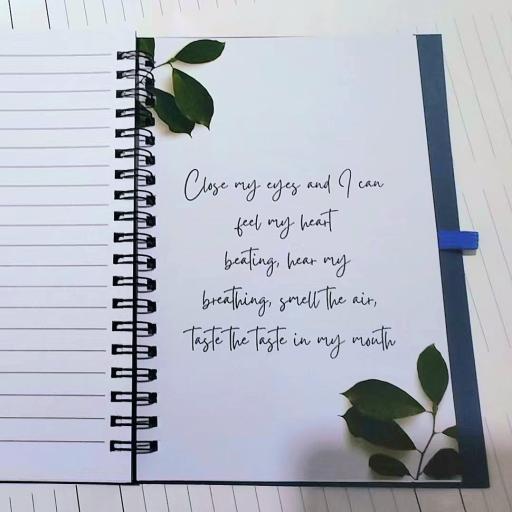 Close my eyes and I can
feel my heart
beating, hear my
breathing, smell the air,
taste the taste in my mouth